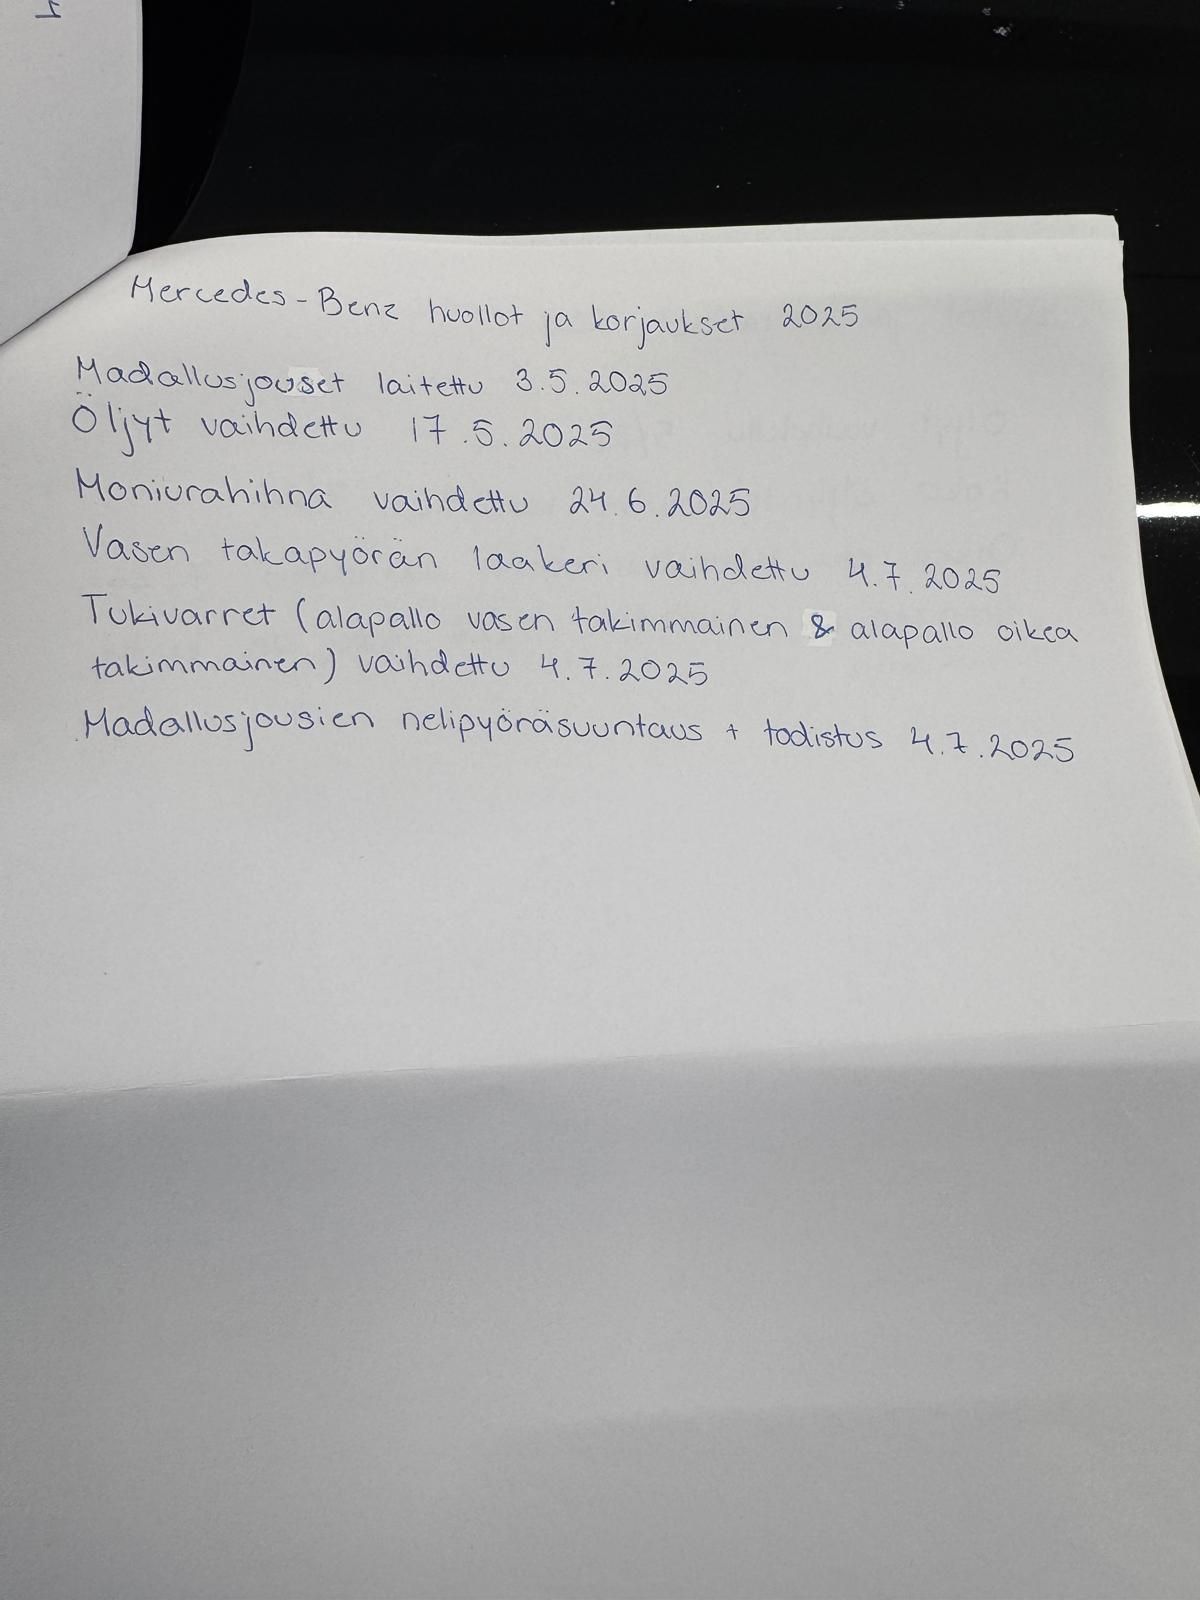 Mercedes-Benz huollot ja korjaukset 2025
Madallusjouset laitettu 3.5.2025
Öljyt vaihdettu 17.5.2025
Moniurahihna vaihdettu 24.6.2025
Vasen takapyörän laakeri vaihdettu 4.7.2025
Tukivarret (alapallo vasen takimmainen & alapallo oikea
takimmainen) vaihdettu 4.7.2025
Madallusjousien nelipyöräsuuntaus + todistus 4.7.2025